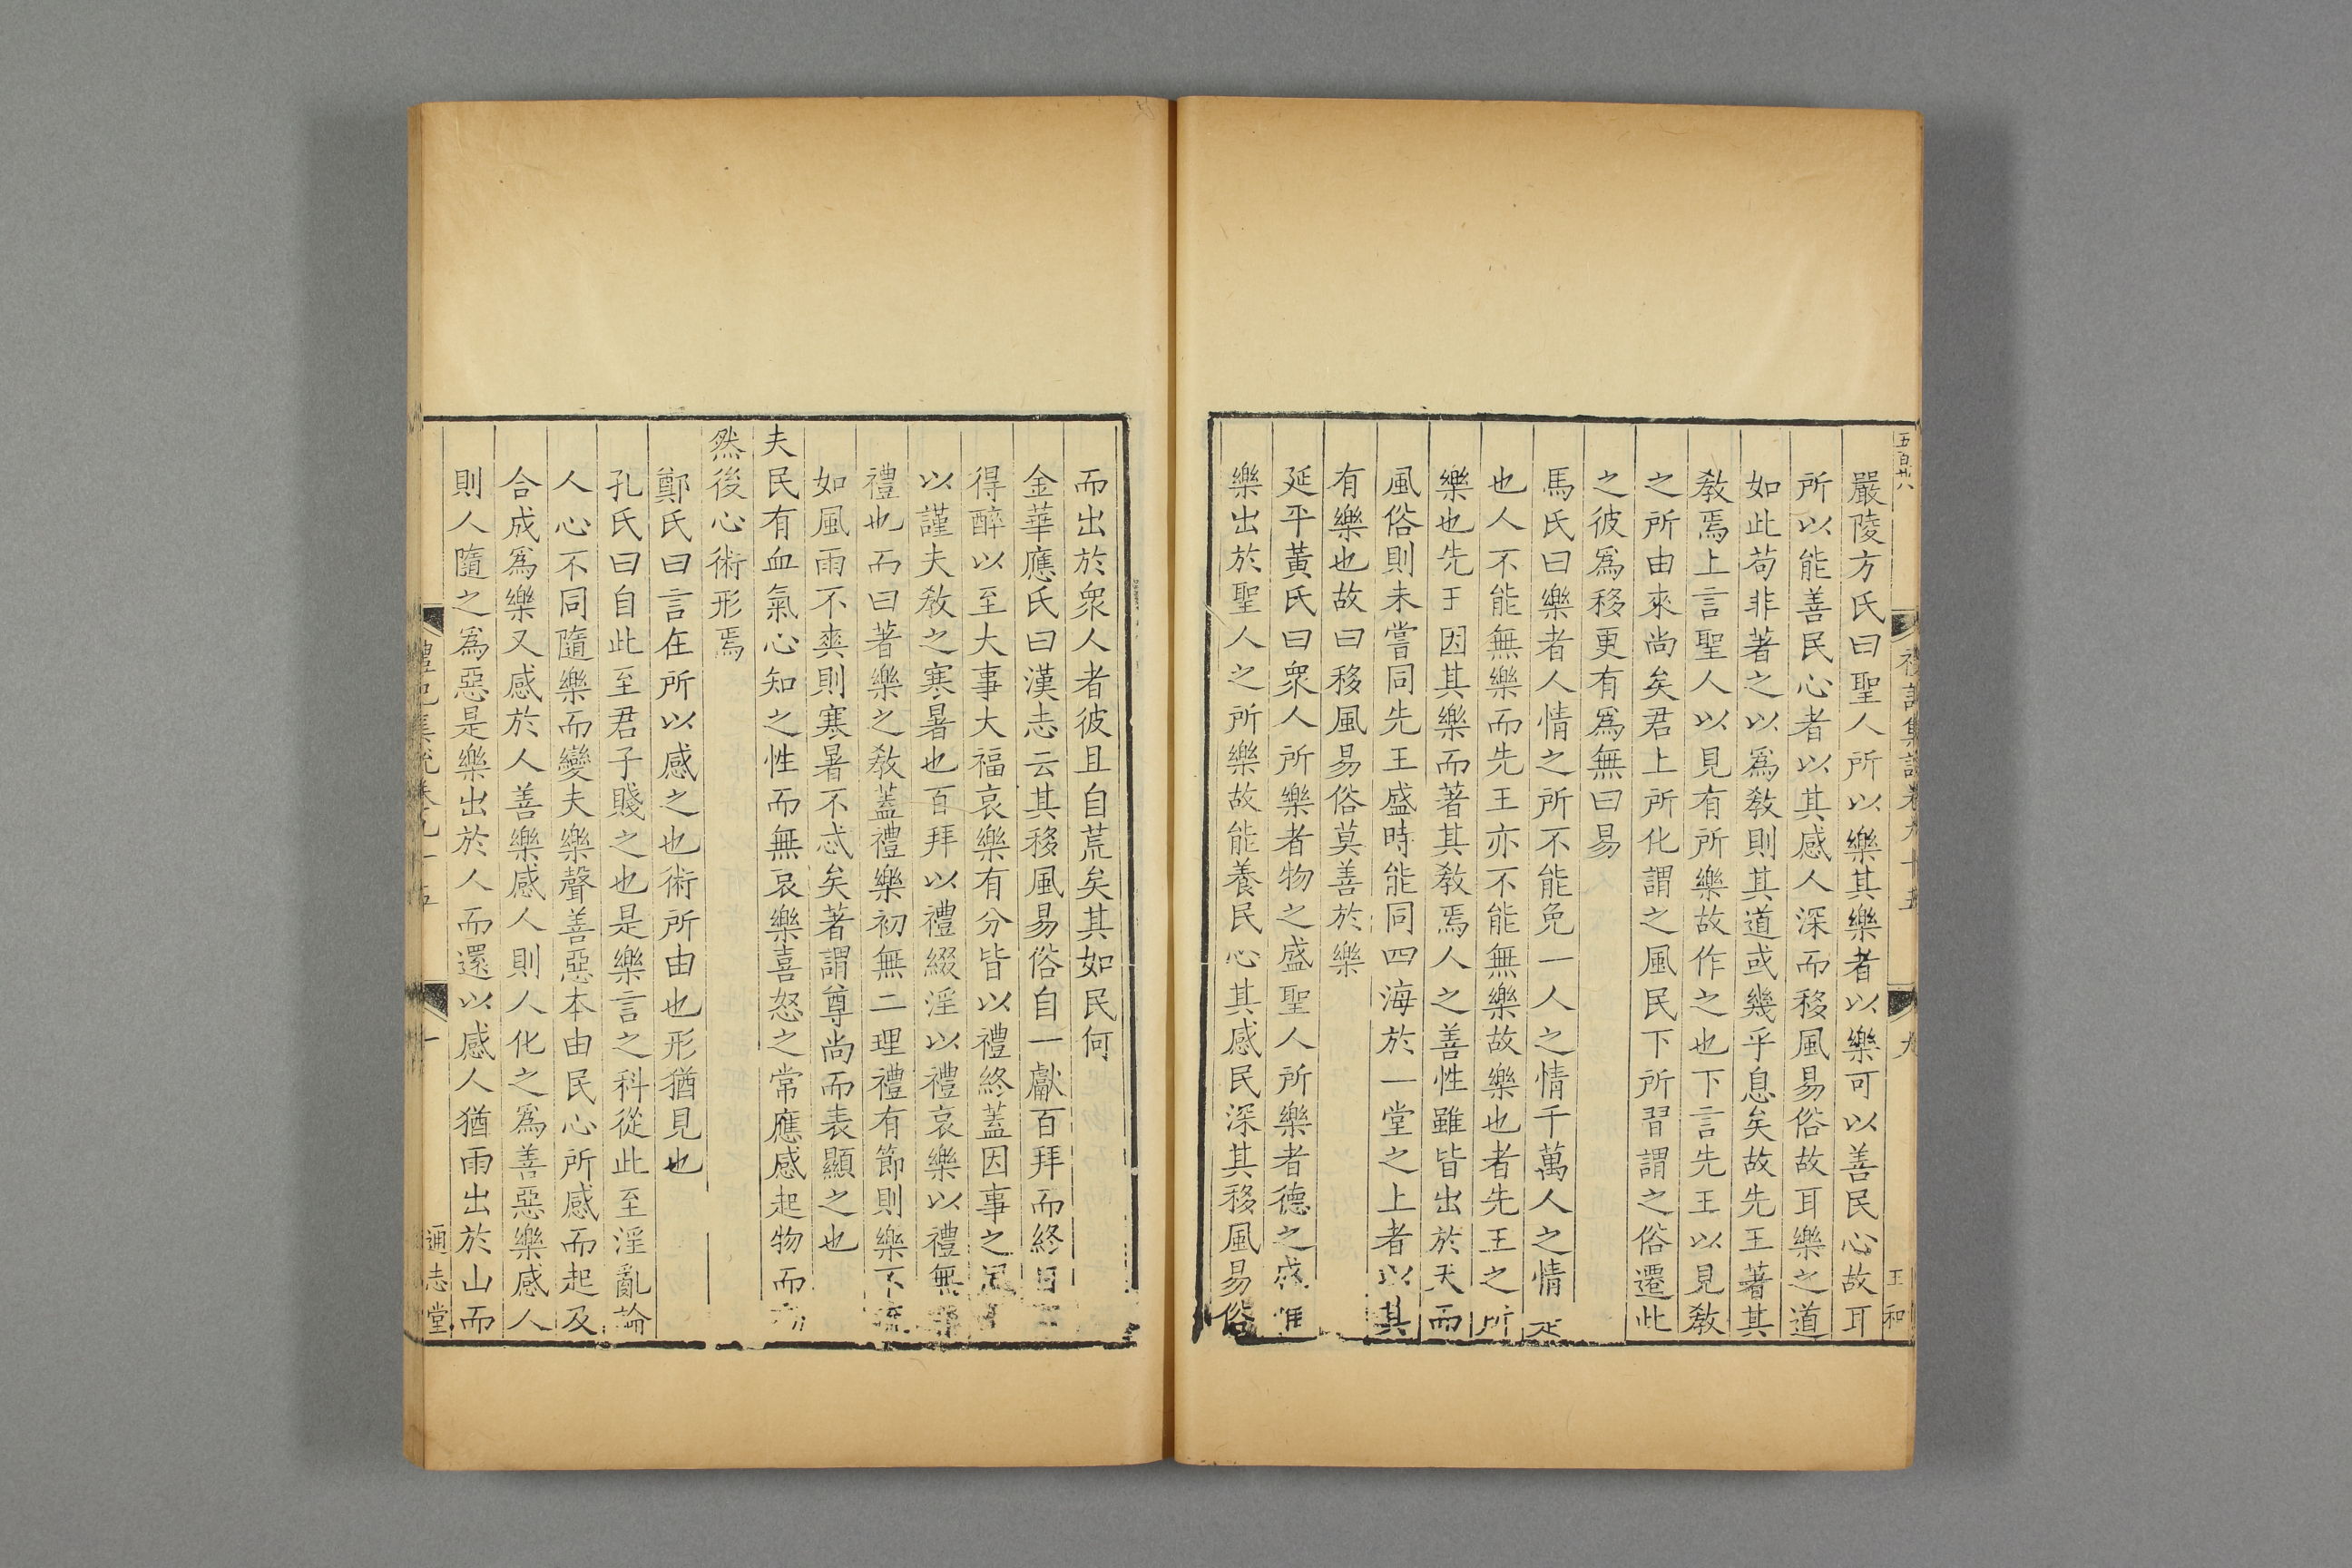 五百廿八
禮記集說卷九十五
九
王和
嚴陵方氏曰聖人所以樂其樂者以樂可以善民心故耳
所以能善民心者以其感人深而移風易俗故耳樂之道
如此苟非著之以爲敎則其道或幾乎息矣故先王著其
敎焉上言聖人以見有所樂故作之也下言先王以見敎
之所由來尚矣君上所化謂之風民下所習謂之俗遷此
之彼爲移更有爲無曰易
馬氏曰樂者人情之所不能免一人之情千萬人之情
也人不能無樂而先王亦不能無樂故樂也者先王之所
樂也先王因其樂而著其敎焉人之善性雖皆出於天而
風俗則未嘗同先王盛時能同四海於一堂之上者以其
有樂也故曰移風易俗莫善於樂
延平黃氏曰衆人所樂者物之盛聖人所樂者德之盛惟
樂出於聖人之所樂故能養民心其感民深其移風易俗
而出於衆人者彼且自荒矣其如民何
金華應氏曰漢志云其移風易俗自一獻百拜而終日
得醉以至大事大福哀樂有分皆以禮終蓋因事之
以謹夫敎之寒暑也百拜以禮綴淫以禮哀樂以禮無
禮也而曰著樂之敎蓋禮樂初無二理禮有節則樂不流
如風雨不爽則寒暑不忒矣著謂尊尚而表顯之也
夫民有血氣心知之性而無哀樂喜怒之常應感起物而
然後心術形焉
鄭氏曰言在所以感之也術所由也形猶見也
孔氏曰自此至君子賤之也是樂言之科從此至淫亂論
人心不同隨樂而變夫樂聲善惡本由民心所感而起及
合成爲樂又感於人善樂感人則人化之爲善惡樂感人
則人隨之爲惡是樂出於人而還以感人猶雨出於山而
禮記集說卷九十五
十
通志堂